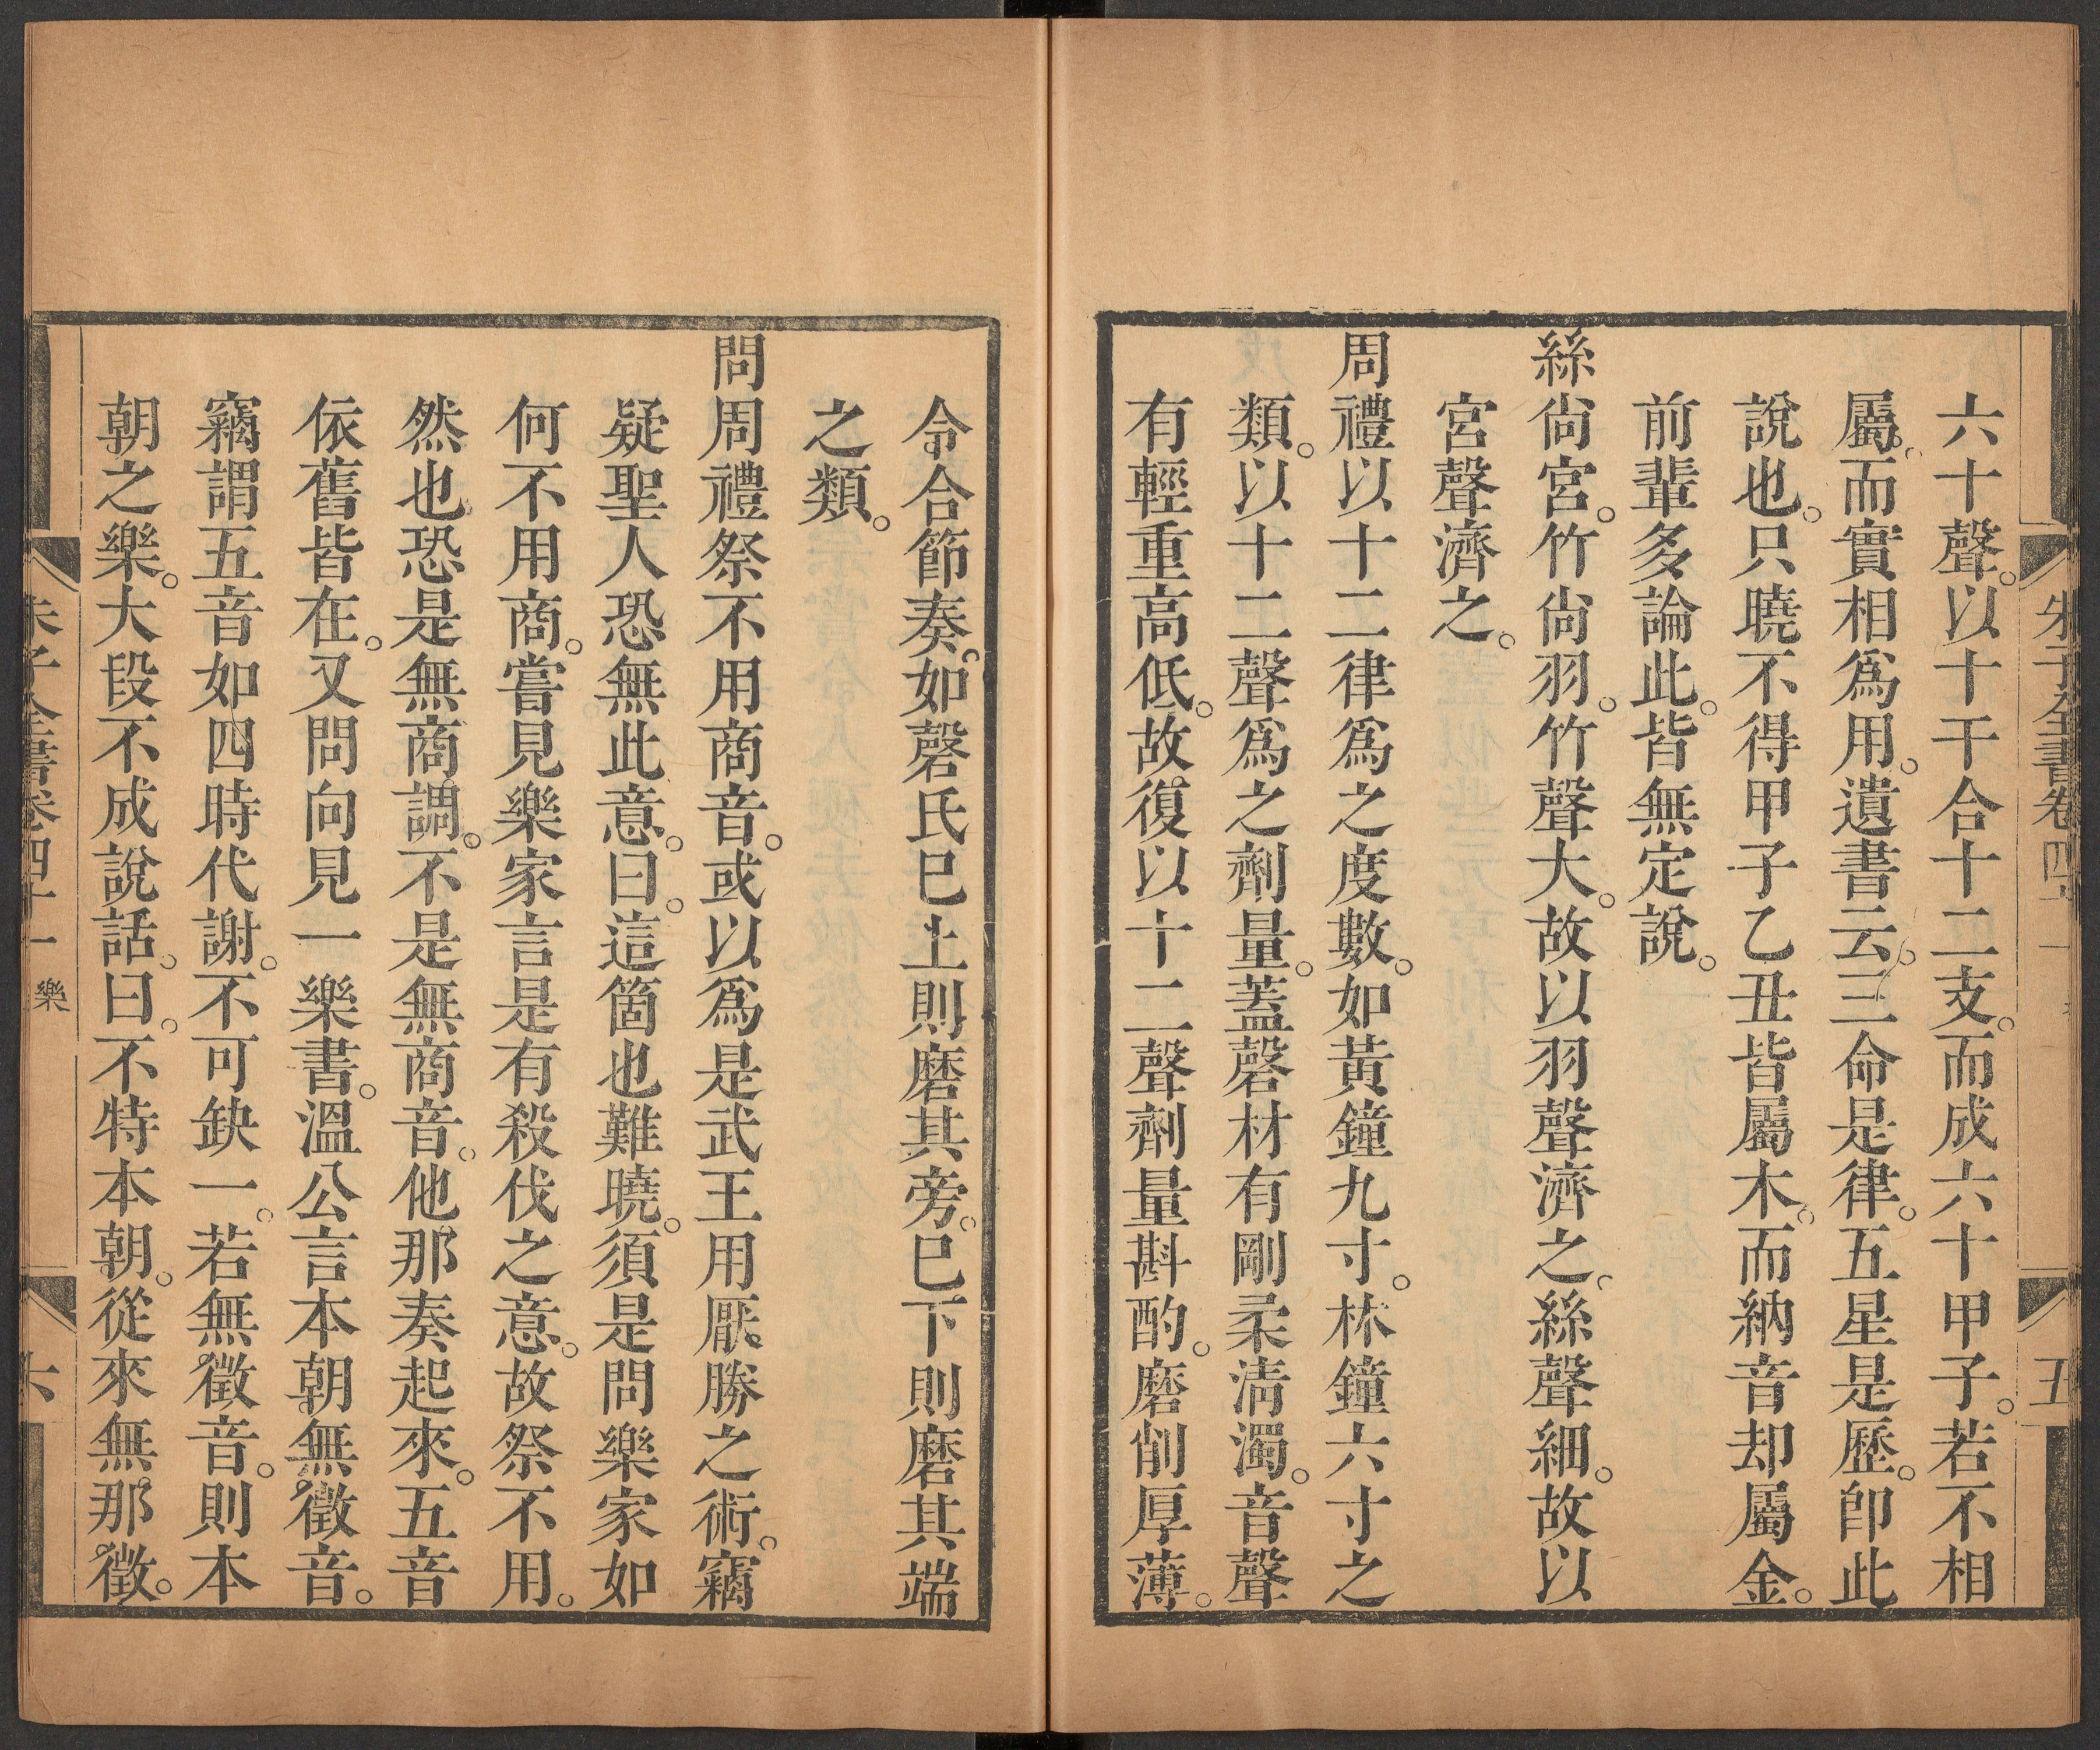 六十聲。以十干合十二支。而成六十甲子。若不相
屬。而實相爲用。遺書云。三命是律。五星是歷。卽此
說也。只曉不得甲子乙丑皆屬木。而納音却屬金。
前輩多論此。皆無定說。
絲尙宮。竹尙羽。竹聲大。故以羽聲濟之。絲聲細。故以
宮聲濟之。
周禮以十二律爲之度數。如黃鐘九寸。林鐘六寸之
類。以十二聲爲之劑量。蓋磬材有剛柔淸濁。音聲
有輕重高低。故復以十二聲劑量斟酌。磨削厚薄。
令合節奏。如磬氏已上則磨其旁。已下則磨其端
之類。
問周禮祭不用商音。或以爲是武王用厭勝之術。竊
疑聖人恐無此意。曰。這箇也難曉。須是問樂家如
何不用商。嘗見樂家言是有殺伐之意。故祭不用。
然也恐是無商調。不是無商音。他那奏起來。五音
依舊皆在。又問向見一樂書。溫公言本朝無徵音。
竊謂五音如四時代謝。不可缺一。若無徵音。則本
朝之樂。大段不成說話。曰。不特本朝。從來無那徵。
朱子全書卷四十一 樂 六